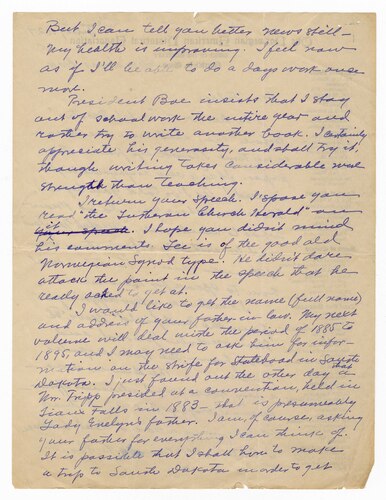 But I can tell you better news still—
My health is improving. I feel now
as if I'll be able to do a days work once
more.
President Boe insists that I stay
out of school work the entire year and
rather try to write another book. I certainly
appreciate his generosity, and shall try it,
though writing takes considerable more
strength than teaching.
I return your speech. I spose you
read "the Lutheran Church Herald" on
it. I hope you didn't mind
his comments. Lee is of the good old
Norwegian Synod type. He didn't dare
attack the point in the speech that he
really ached to get at.
I would like to get the name (full name)
and address of your father in law. My next
volume will deal with the period of 1885 to
1895, and I may need to ask him for infor-
mation on the strife for Statehood in South
Dakota. I just found out the other day that
Mr. Tripp presided at a convention, held in
Sioux Falls in 1883 – that is presumeably
Lady Evelyn's father. I am, of course, asking
your father for everything I can think of.
It is possible that I shall have to make
a trip to South Dakota in order to get